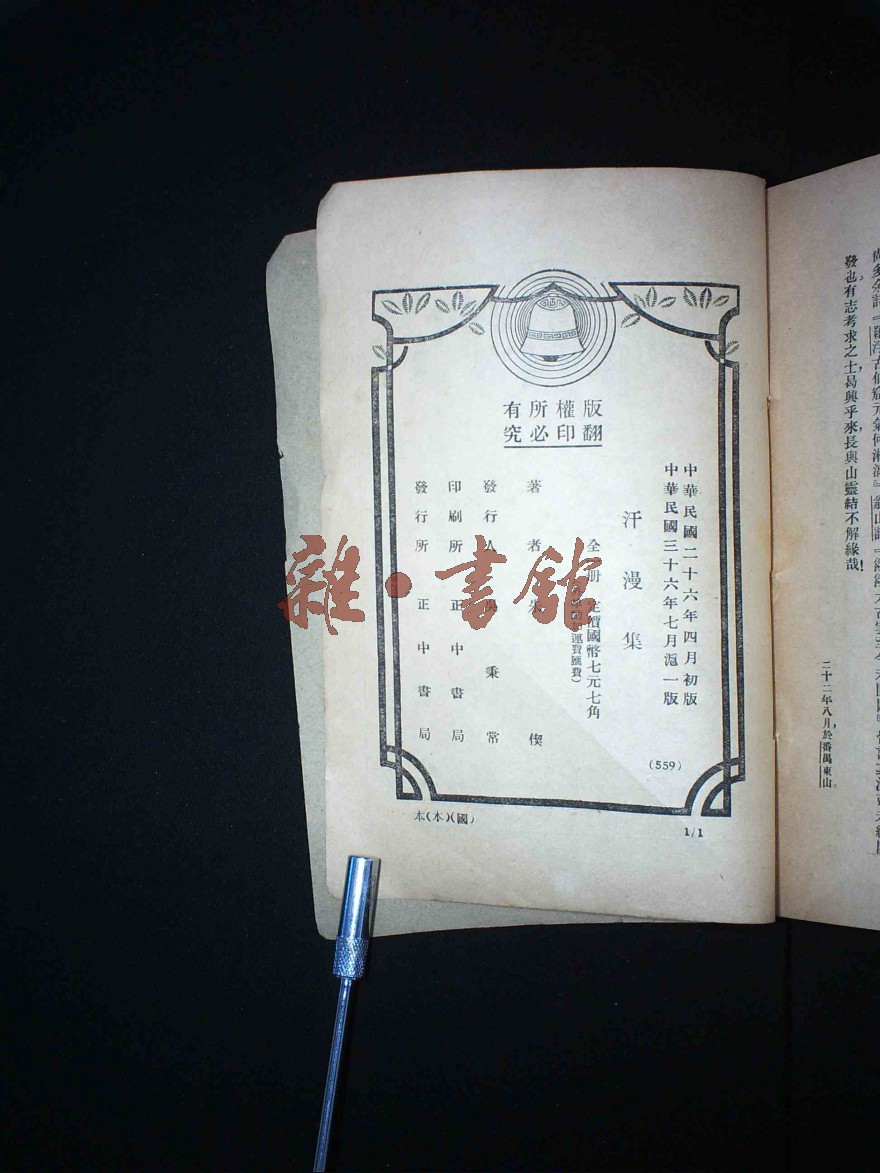 發也有志考求之士曷興乎來長與山靈結不解緣哉!
二十二年八月於番禺東山。
版權所有
翻印必究
中華民國二十六年四月初版
中華民國三十六年七月滬一版
汗漫集
全一册 定價國幣七元七角
運費匯費)
著者 朱偰
發行人 吳秉常
印刷所 正中書局
發行所 正中書局
(559)
1/1
本(本)(國)
雜·書館